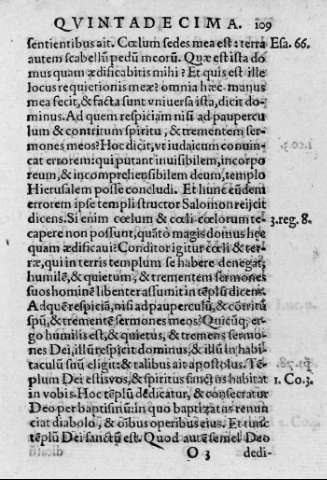 QVINTADECIMA. 109
sententibus ait. Cœlum sedes mea est: terra Esa. 66.
autem scabellũ pedũ meorũ. Quæ est ista do
mus quam ædificabitis mihi? Et quis est ille
locus requietionis meæ? omnia hæc manus
mea fecit, & facta sunt vniuersa ista, dicit do-
minus. Ad quem respiciam nisi ad paupercu
lum & contritum spiritu, & trementem ser-
mones meos? Hoc dicit, vt iudaicum conuin-
cat errorem: qui putant inuisibilem, incorpo
reum, & incomprehensibilem deum, templo
Hierusalem posse concludi. Et hunc eũdem
errorem ipse templi structor Salomon reijcit
dicens. Si enim cœlum & cœli cœlorum te- 3.reg. 8.
capere non possunt, quãto magis domus hæc
quam ædificaui? Conditor igitur cœli & ter-
ræ, qui in terris templum se habere denegat,
humilẽ, & quietum, & trementem sermones
suos hominẽ libenter assumit in tẽplũ dicens.
Ad quẽ respiciã, nisi ad pauperculũ, & cõtritũ
spũ, & trementẽ sermones meos? Quicũq; er-
go humilis est, & quietus, & tremens sermo-
nes Dei, illũ respicit dominus, & illũ in habi-
taculũ suũ eligit: & talibus ait apostolus. Tẽ-
plum Dei estis vos, & spiritus sanctus habitat 1. Co.3.
in vobis. Hoc tẽplũ dedicatur, & consecratur
Deo per baptismũ: in quo baptizatus renun
ciat diabolo, & oĩbus operibus eius. Et tunc
tẽplũ Dei sanctũ est. Quod autẽ semel Deo
O 3 dedi-